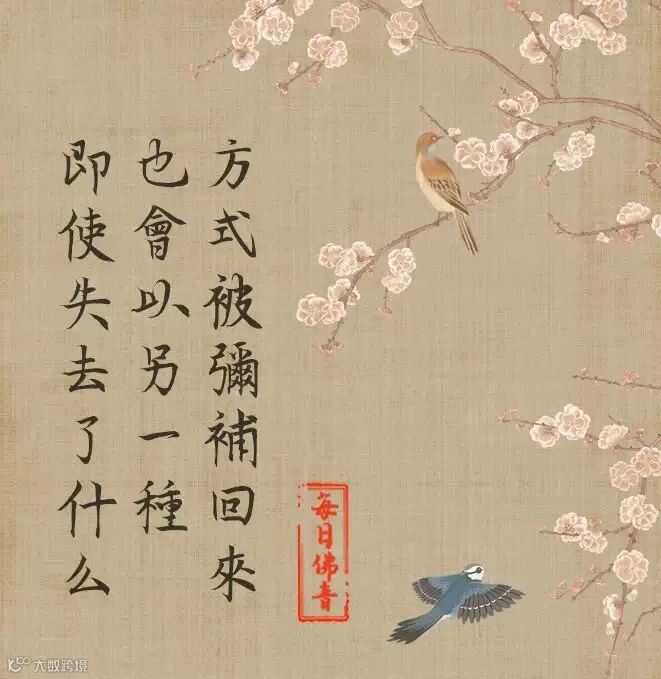 即使失去了什么
也會以另一種
方式被彌補回來
每日佛音
大数跨境